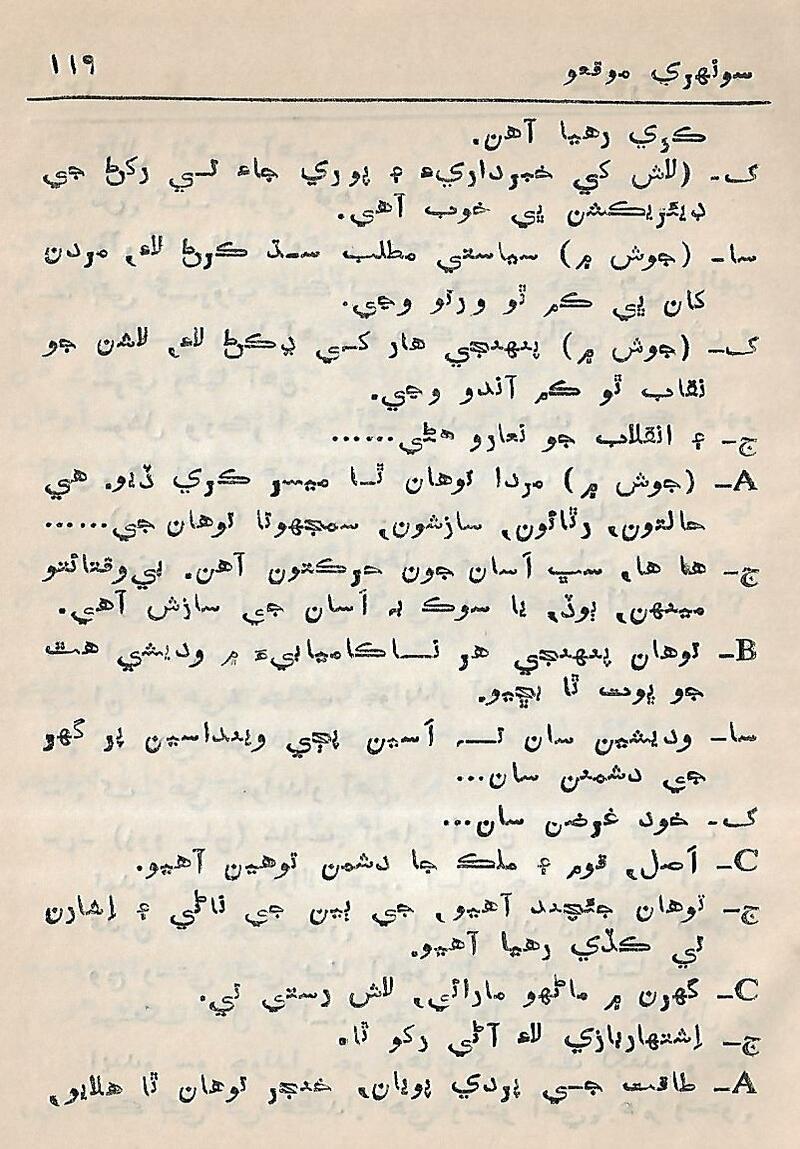 سونهري موقعو ١١٩
ڪري رهيا آهن.
گ- (لاش کي خبرداريءَ ۽ پوري جاءِ تي رکڻ جي
ڊيئريڪشن ڀي خوب آهي.
سا- (جوش ۾) سياستي مطلب سڌ ڪرڻ لاءِ, مردن
کان ڀي ڪم ٿو ورتو وڃي.
گ- (جوش ۾) پنهنجي هار کي ڍڪڻ لاءِ, لاشن جو
نقاب ٿو ڪم آندو وڃي.
ج- ۽ انقلاب جو نعارو هڻي......
A- (جوش ۾) مردا توهان ٿا ميسر ڪري ڏيو. هي
حالتون, رٿائون, سازشون, سمجهوتا توهان جي......
ج- ها ها, سڀ اَسان جون حرڪتون آهن. بي وقتائتو
مينهن, ٻوڏ, يا سوڪ بہ اَسان جي سازش آهي.
B- توهان پنهنجي هر ناڪاميابيءَ ۾ وديشي هٿ
جو ڀوت ٿا ڀڃيو.
سا- وديشين سان تہ اَسين پڄي وينداسين پر گهر
جي دشمنن سان...
گ- خود غرضن سان...
C- اَصل, قوم ۽ ملڪ جا دشمن توهين آهيو.
ج- توهان جئچند آهيو, جي ٻين جي تاڻي ۽ اِشارن
تي ڪڏي رهيا آهيو.
C- گهرن ۾ ماڻهو مارائي, لاش رستي تي.
ج- اِشتهاربازي لاءِ آڻي رکو ٿا.
A- طاقت جي پردي پويان, خنجر توهان ٿا هلايو,